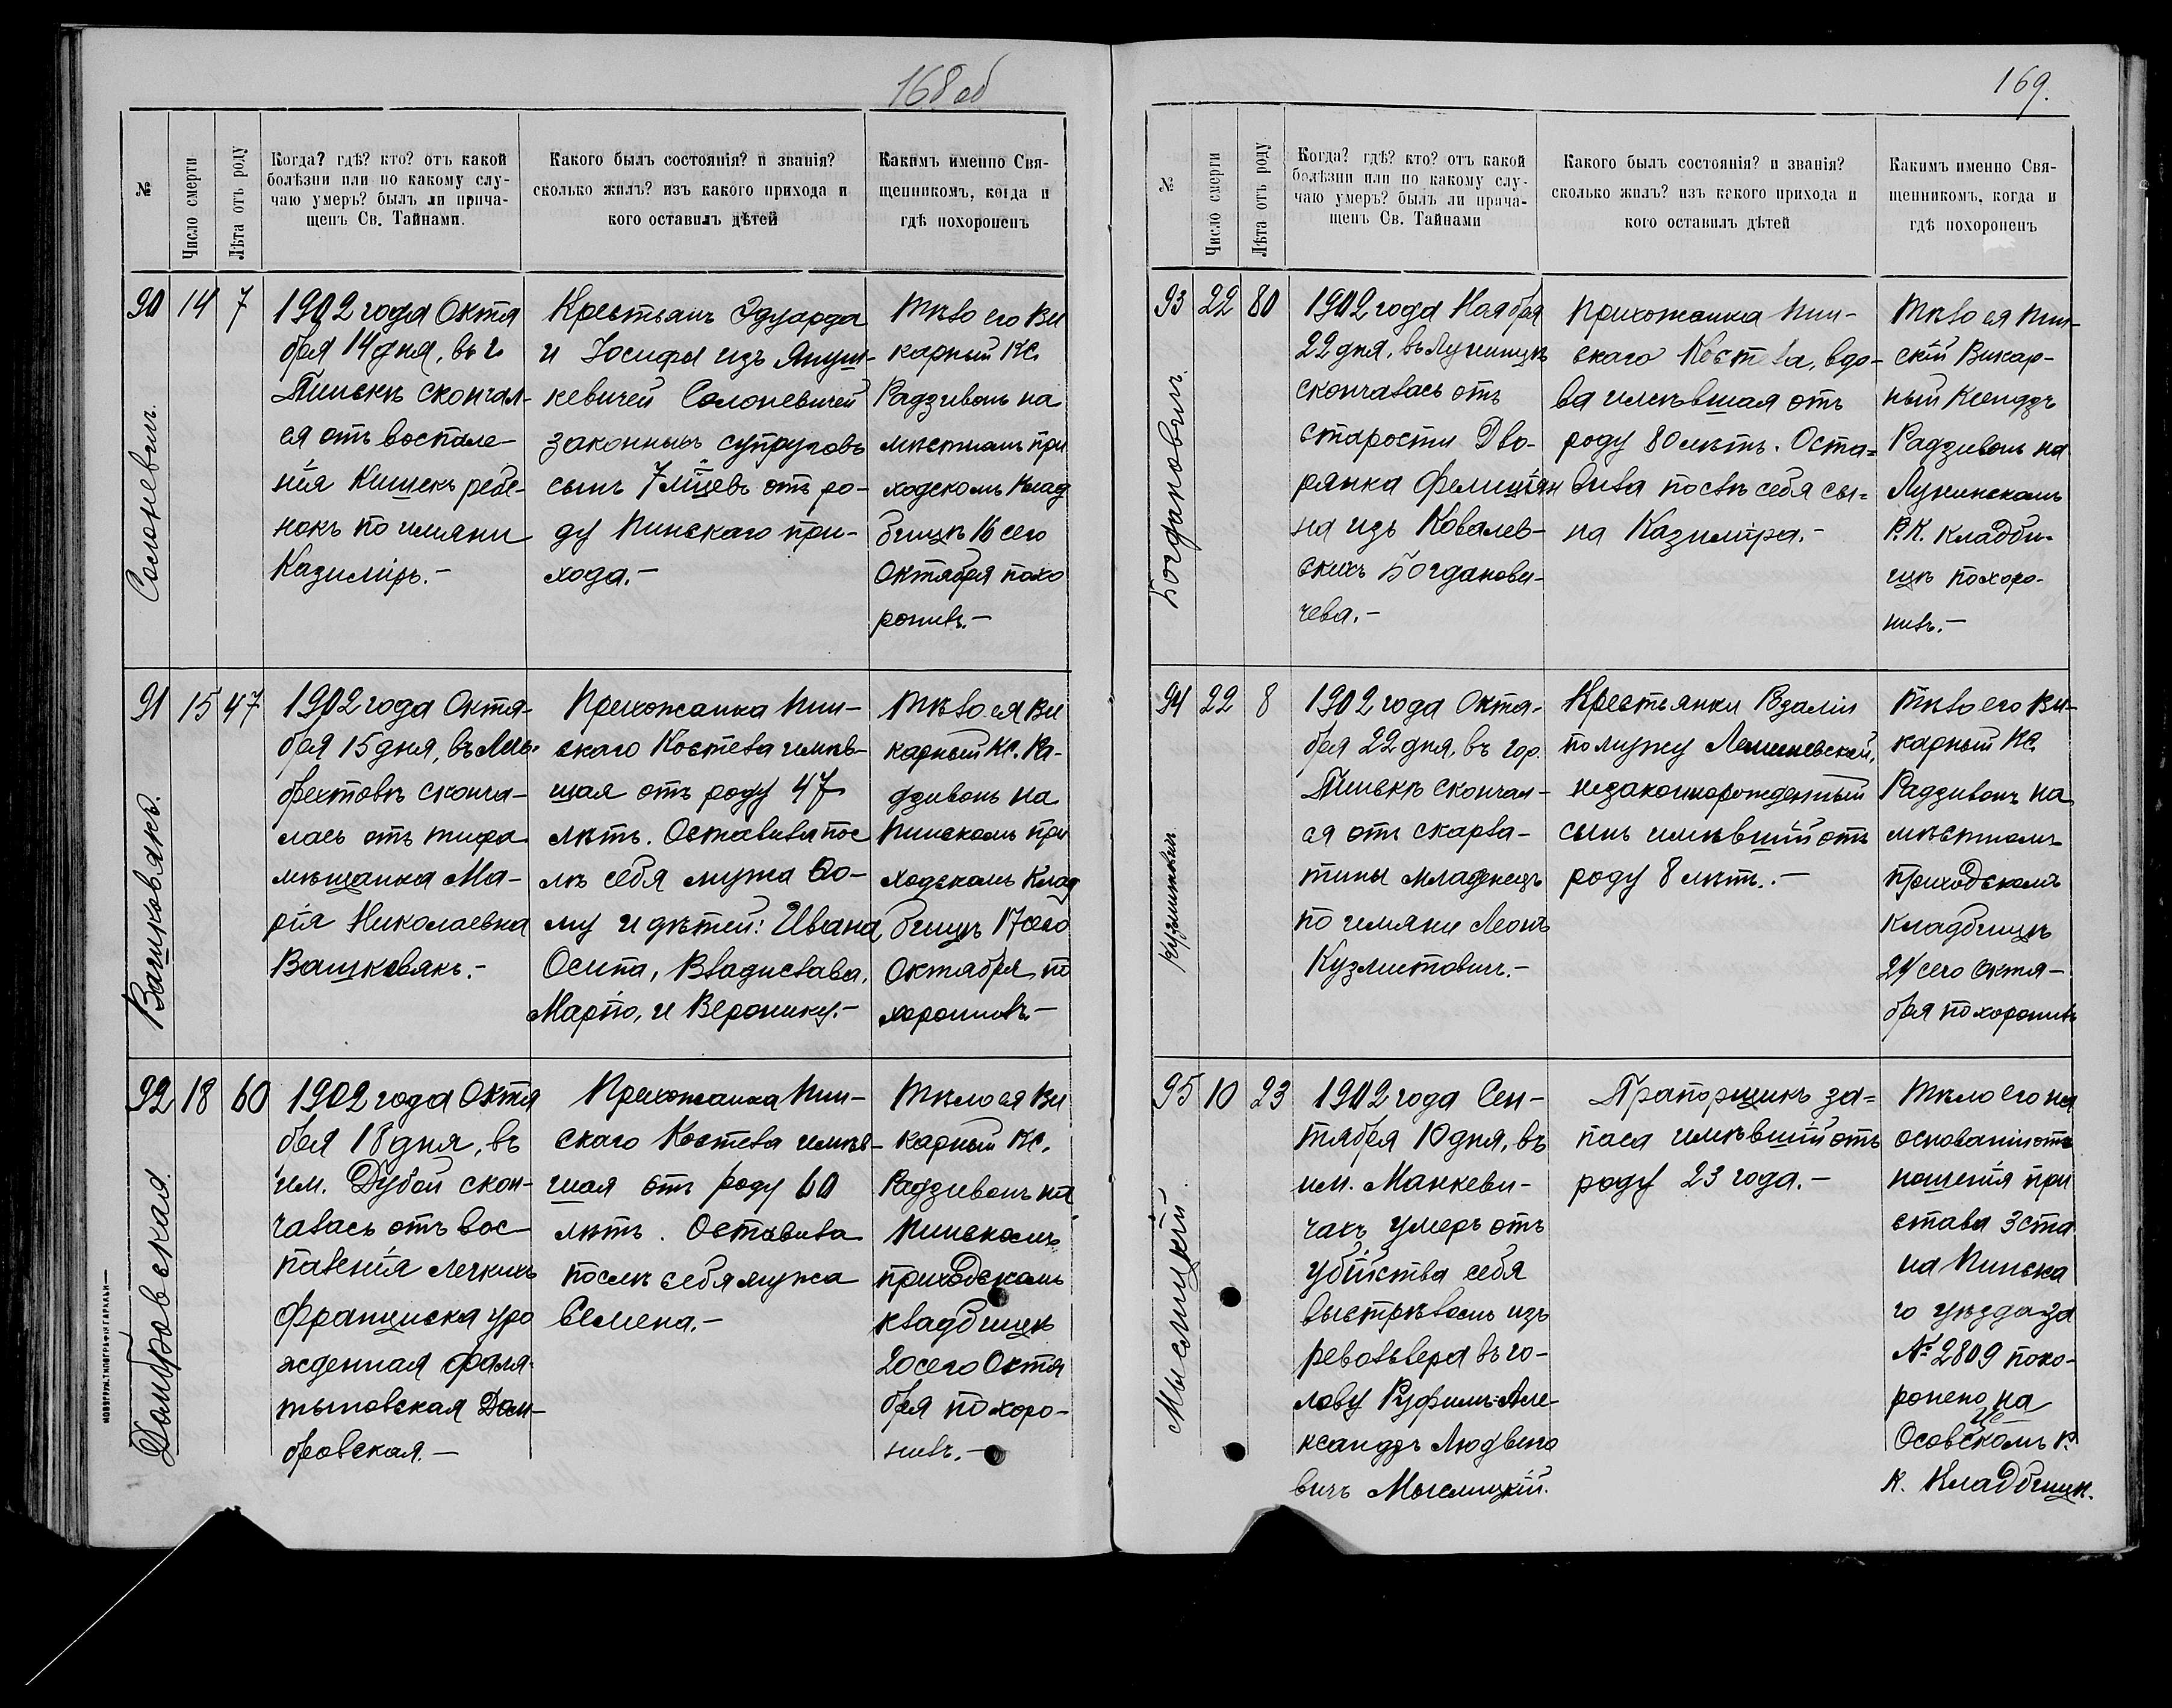 168 об
№
Число смерти
Лѣта отъ роду
Когда? гдѣ? кто? отъ какой
болѣзни или по какому слу-
чаю умеръ? былъ ли прича-
щенъ Св. Тайнами.
Какого былъ состоянія? и званія?
сколько жилъ? изъ какого прихода и
кого оставилъ дѣтей
Какимъ именно Свя-
щенникомъ, когда и
гдѣ похороненъ
90
14
7
Солоневичъ.
1902 года Октя
бря 14 дня, въ г.
Пинскѣ скончал-
ся отъ воспале-
нія Кишекъ ребе-
нокъ по имяни
Казиміръ.-
Крестьянъ Эдуарда
и Іосифы изъ Януш-
кевичей Солоневичей
законныхъ супруговъ
сынъ 7 мѣ-цевъ отъ ро-
ду Пинскаго при-
хода.-
Тѣло его Ви
карный Кс.
Радзивонъ на
мѣстномъ при
ходскомъ Клад
бищѣ 16 сего
Октября похо
ронилъ.-
91
15
47
Вашковякъ.
1902 года Октя-
бря 15 дня, въ
брехтовѣ сконча-
лась отъ тифа
мѣщанка Ма-
рія Николаевна
Вашковякъ.-
Прихожанка Пин-
скаго Костела имѣв-
шая отъ роду 47
лѣтъ. Оставила пос
лѣ себя мужа Ѳо-
му и дѣтей: Ивана,
Осипа, Владислава,
Марію, и Веронику.-
Тѣло ея Ви
карный Кс. Ра-
дзивонъ на
Пинскомъ при
ходскомъ Клад
бищѣ 17 сего
Октября по
хоронилъ.-
92
18
60
Домбровская.
1902 года Октя
бря 18 дня, въ
им. Дубой скон-
чалась отъ вос-
паленія легкихъ
Франциска уро
жденная Фаля-
тыновская Дом-
бровская.-
Прихожанка Пин-
скаго Костела имѣв-
шая отъ роду 60
лѣтъ. Оставила
послѣ себя мужа
Семена.-
Тѣло ея Ви
карный Кс.
Радзивонъ на
Пинскомъ
приходскомъ
кладбищѣ
20 сего Октя
бря похоро-
нилъ.-
169.
№
Число смерти
Лѣта отъ роду
Когда? гдѣ? кто? отъ какой
болѣзни или по какому слу-
чаю умеръ? былъ ли прича-
щенъ Св. Тайнами
Какого былъ состоянія? и званія?
сколько жилъ? изъ какого прихода и
кого оставилъ дѣтей
Какимъ именно Свя-
щенникомъ, когда и
гдѣ похороненъ
93
22
80
Богдановичъ.
1902 года Ноября
22 дня, въ Лунинцѣ
скончалась отъ
старости Дво-
рянка Фелиціан
на изъ Ковалев-
скихъ Богданови-
чева.-
Прихожанка Пин-
скаго Костела, вдо-
ва имѣвшая отъ
роду 80 лѣтъ. Оста-
вила послѣ себя сы-
на Казиміра.-
Тѣло ея Пин-
скій Викар-
ный Ксендзъ
Радзивонъ на
Лунинскомъ
Р.К. кладби-
щѣ похоро-
нилъ.-
94
22
8
1902 года Октя-
бря 22 дня, въ гор.
Пинскѣ скончал-
ся отъ скарла-
тины младенецъ
по имяни Леонъ
Крестьянки Розаліи
по мужу
незаконнорожденный
сынъ имѣвшій отъ
роду 8 лѣтъ.-
Тѣло его Ви-
карный Кс.
Радзивонъ на
мѣстномъ
приходскомъ
Кладбищѣ
24 сего Октя-
бря похоронилъ
95
10
23
Мыслицкій.
1902 года Сен-
тября 10 дня, въ
им. Манкеви-
чахъ умеръ отъ
убійства себя
выстрѣломъ изъ
револьвера въ го-
лову Руфимъ-Але-
ксандръ Людвиго
вичъ Мыслицкій.
Прапорщикъ за-
паса имѣвшій отъ
роду 23 года.-
Тѣло его на
основаніи от
ношенія при
става 3 ста
на Пинска
го уѣзда за
№ 2809 похо-
ронено на
Осовскомъ Р.
К. Кладбищѣ.